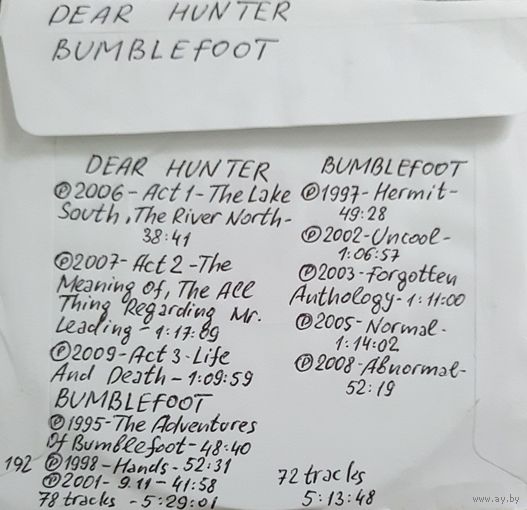 DEAR HUNTER
BUMBLEFOOT
DEAR HUNTER
℗2006 - Act 1 - The Lake
South, The River North -
38:41
℗2007 - Act 2 - The
Meaning Of, The All
Thing Regarding Mr.
Leading - 1:17:09
℗2009 - Act 3 - Life
And Death - 1:09:59
BUMBLEFOOT
℗1995 - The Adventures
Of Bumblefoot - 48:40
192 ℗1998 - Hands - 52:31
℗2001 - 9.11 - 41:58
78 tracks - 5:29:01
BUMBLEFOOT
℗1997 - Hermit -
49:28
℗2002 - Uncool -
1:06:57
℗2003 - Forgotten
Anthology - 1:11:00
℗2005 - Normal -
1:14:02
℗2008 - Abnormal -
52:19
72 tracks
5:13:48
www.ay.by